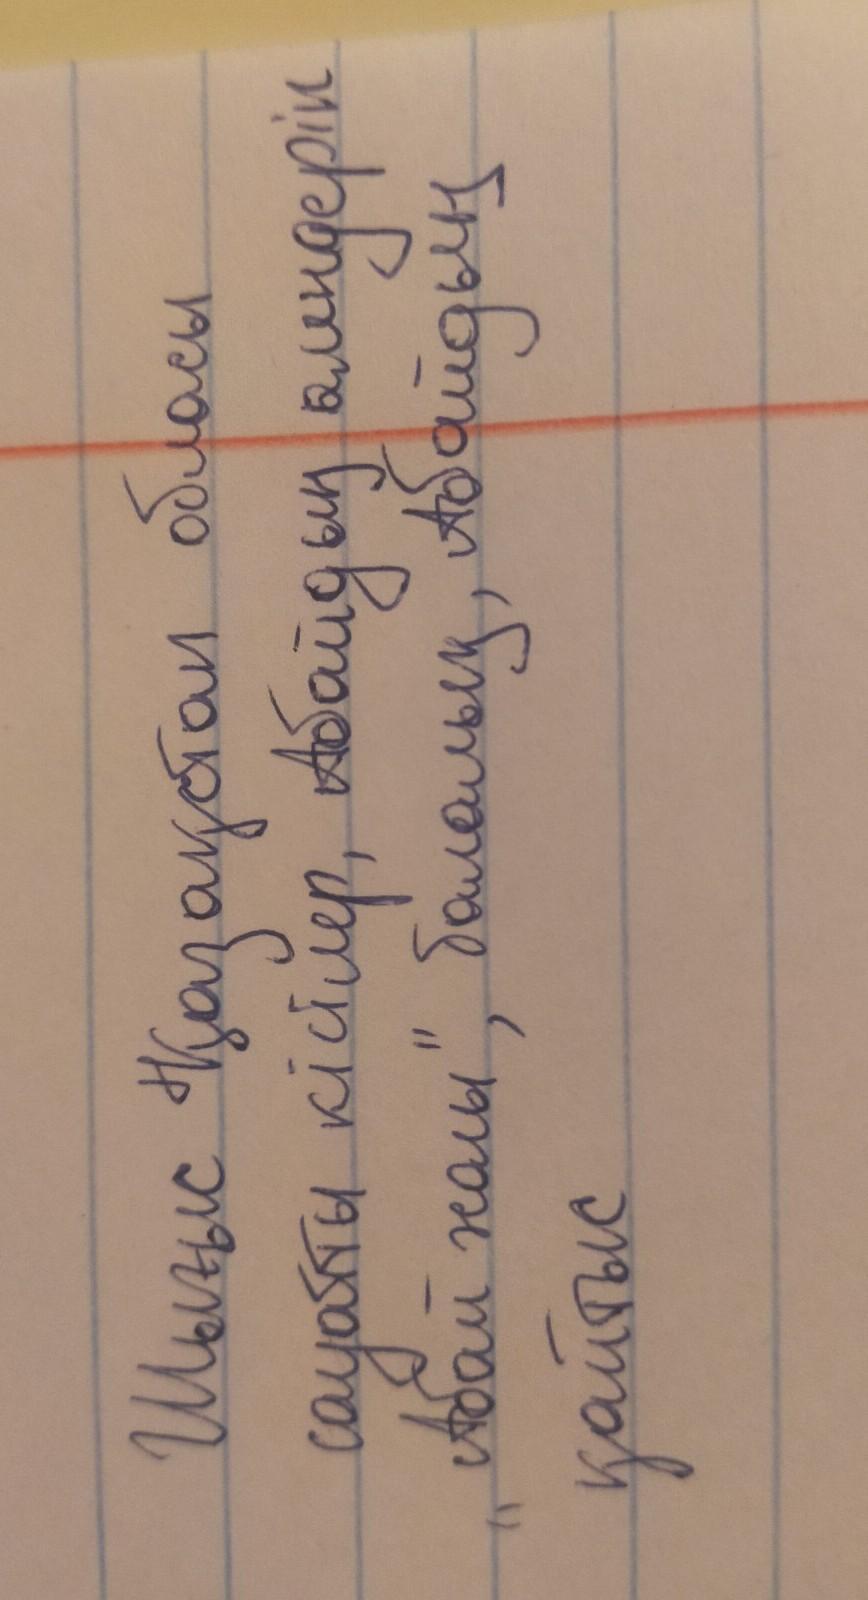 Шығыс Қазақстан обласы
сауатты кісілер, Абайдың өлендерін
"Абай жолы", балалық, Абайдың
қайтыс